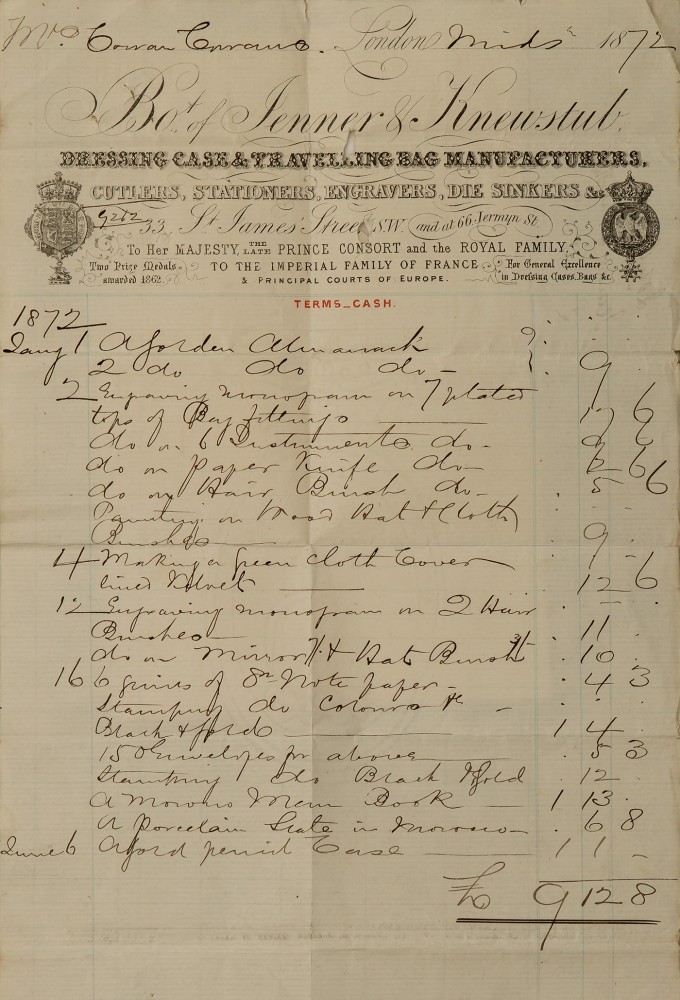 Mrs Cowan London Mids 1872
Bot. of Jenner & Knewstub.
DRESSING CASE & TRAVELLING BAG MANUFACTURERS,
CUTLERS, STATIONERS, ENGRAVERS, DIE SINKERS &c
9262 33, St James' Street, S.W. and at 66 Jermyn St
To Her MAJESTY, THE LATE PRINCE CONSORT and the ROYAL FAMILY,
Two Prize Medals awarded 1862. TO THE IMPERIAL FAMILY OF FRANCE & PRINCIPAL COURTS OF EUROPE. For General Excellence in Dressing Cases, Bags &c.
TERMS_CASH.
1872
Jany 1 A Almanack
2 do do do - 9 -
2 Engraving monogram on 7 plated
tops of Bag fittings 17 6
do on 6 Instruments do - 9 6
do on Paper Knife do - 6
do on Hair Brush do - 5 6
Painting on Wood Hat & Cloth
Brushes 9 -
4 Making a green cloth Cover
lined Velvet 12 6
12 Engraving monogram on 2 Hair
Brushes 11 .
do on Mirror 7/- & Hat Brush 3/- . 10 .
16 6 quires of 8vo Note paper - . 4 3
Stamping do Colours &c -
Black & gold 1 4 .
150 Envelopes for above . 5 3
Stamping do Black & Gold . 12
A Morocco Mem Book 1 13 .
A Porcelain Slate in Morocco - . 6 8
June 6 A gold pencil Case 1 1 -
£ 9 12 8